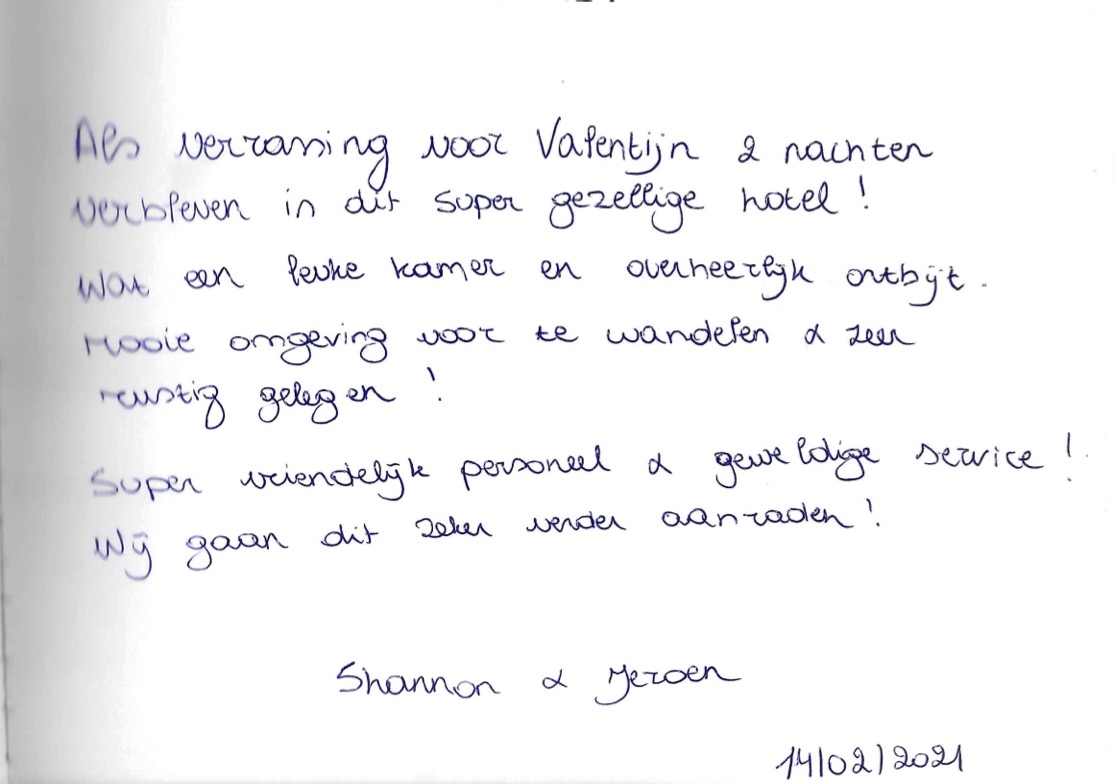 Als verrassing voor Valentijn 2 nachten
verbleven in dit super gezellige hotel !
Wat een leuke kamer en overheerlijk ontbijt.
Mooie omgeving voor te wandelen & zeer
rustig gelegen !
Super vriendelijk personeel & geweldige service !
Wij gaan dit zeker verder aanraden !
Shannon & Jeroen
14/02/2021